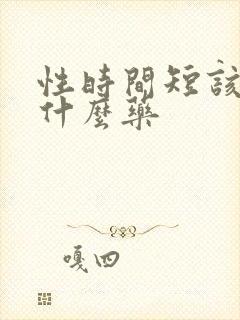 性時間短該
什麼藥
嘎四